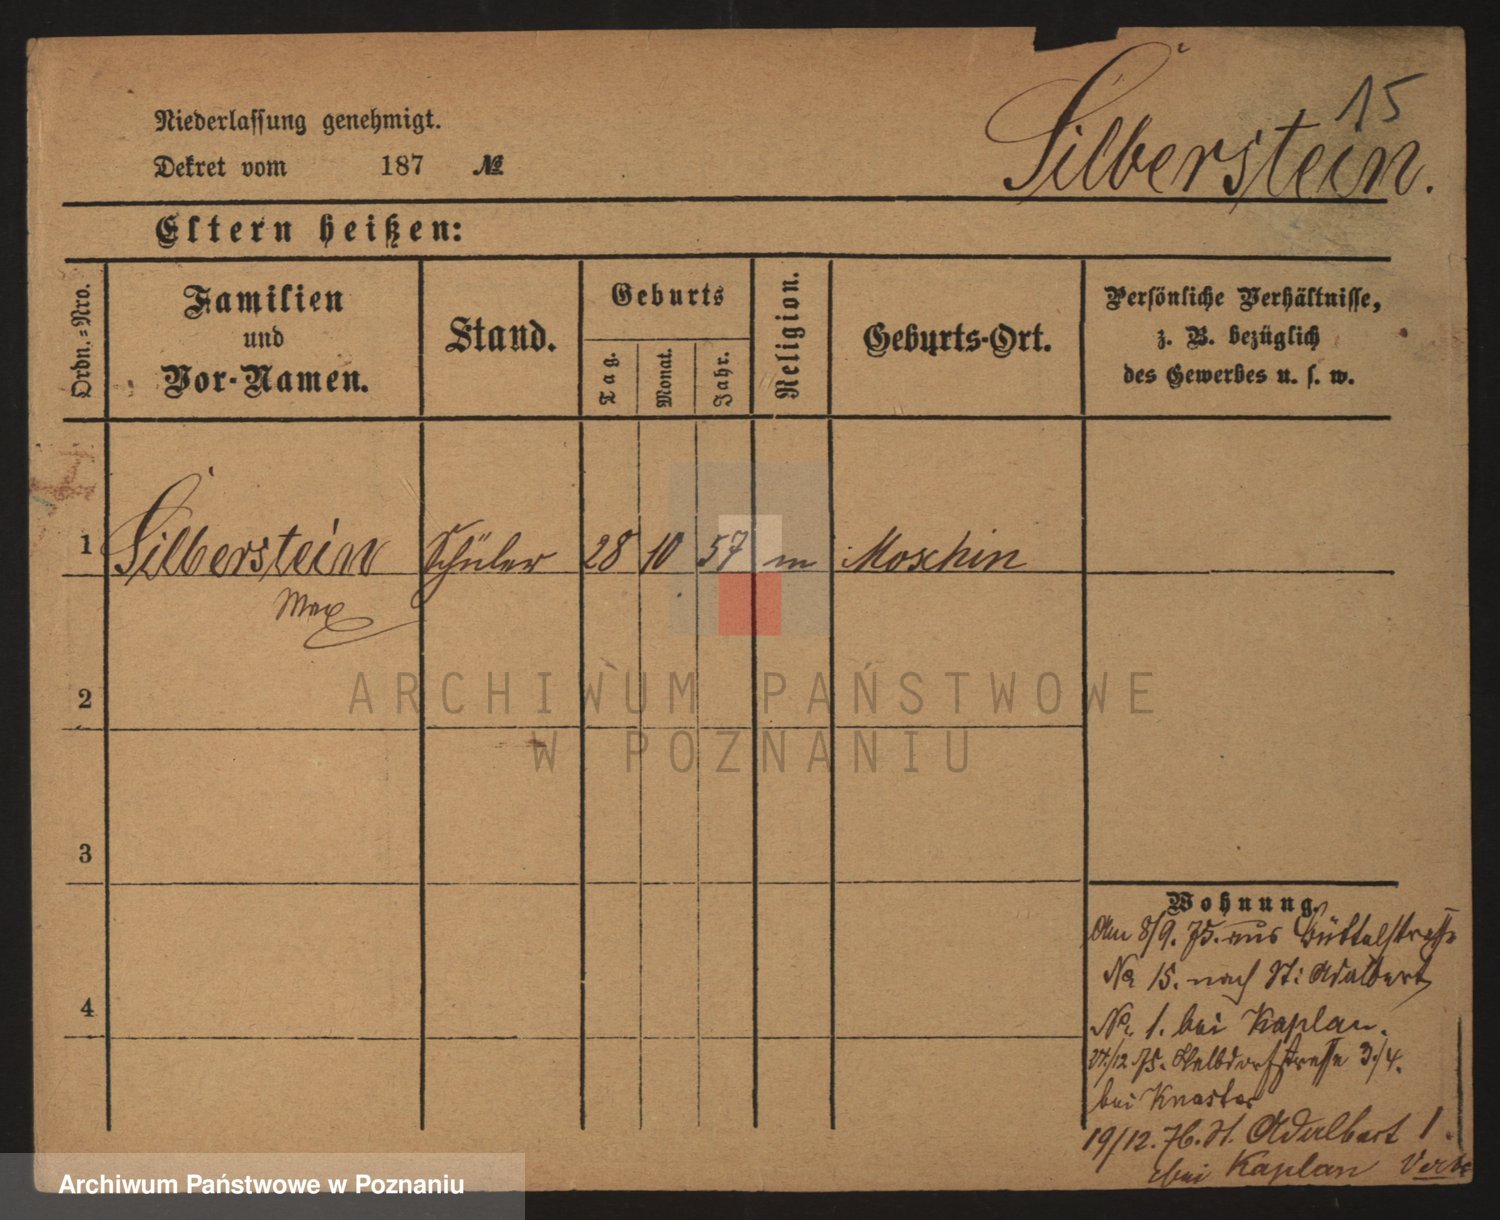 15
Silberstein.
Niederlassung genehmigt.
Dekret vom 187 №
Eltern heißen:
Ordn.=Nro.
Familien
und
Vor-Namen.
Stand.
Geburts
Tag.
Monat.
Jahr.
Religion.
Geburts-Ort.
Persönliche Verhältnisse,
z. B. bezüglich
des Gewerbes u. s. w.
1 Silberstein Schüler 28 10 57 m Moschin
Max
2
3
4
Wohnung.
Am 8/9. 75. aus Büttelstrasse
No 15. nach St: Adalbert
No. 1. bei Kaplan.
12. 75. 3/4.
bei Knaster
19/12. 76. St. Adalbert 1.
bei Kaplan
ARCHIWUM PAŃSTWOWE
W POZNANIU
Archiwum Państwowe w Poznaniu